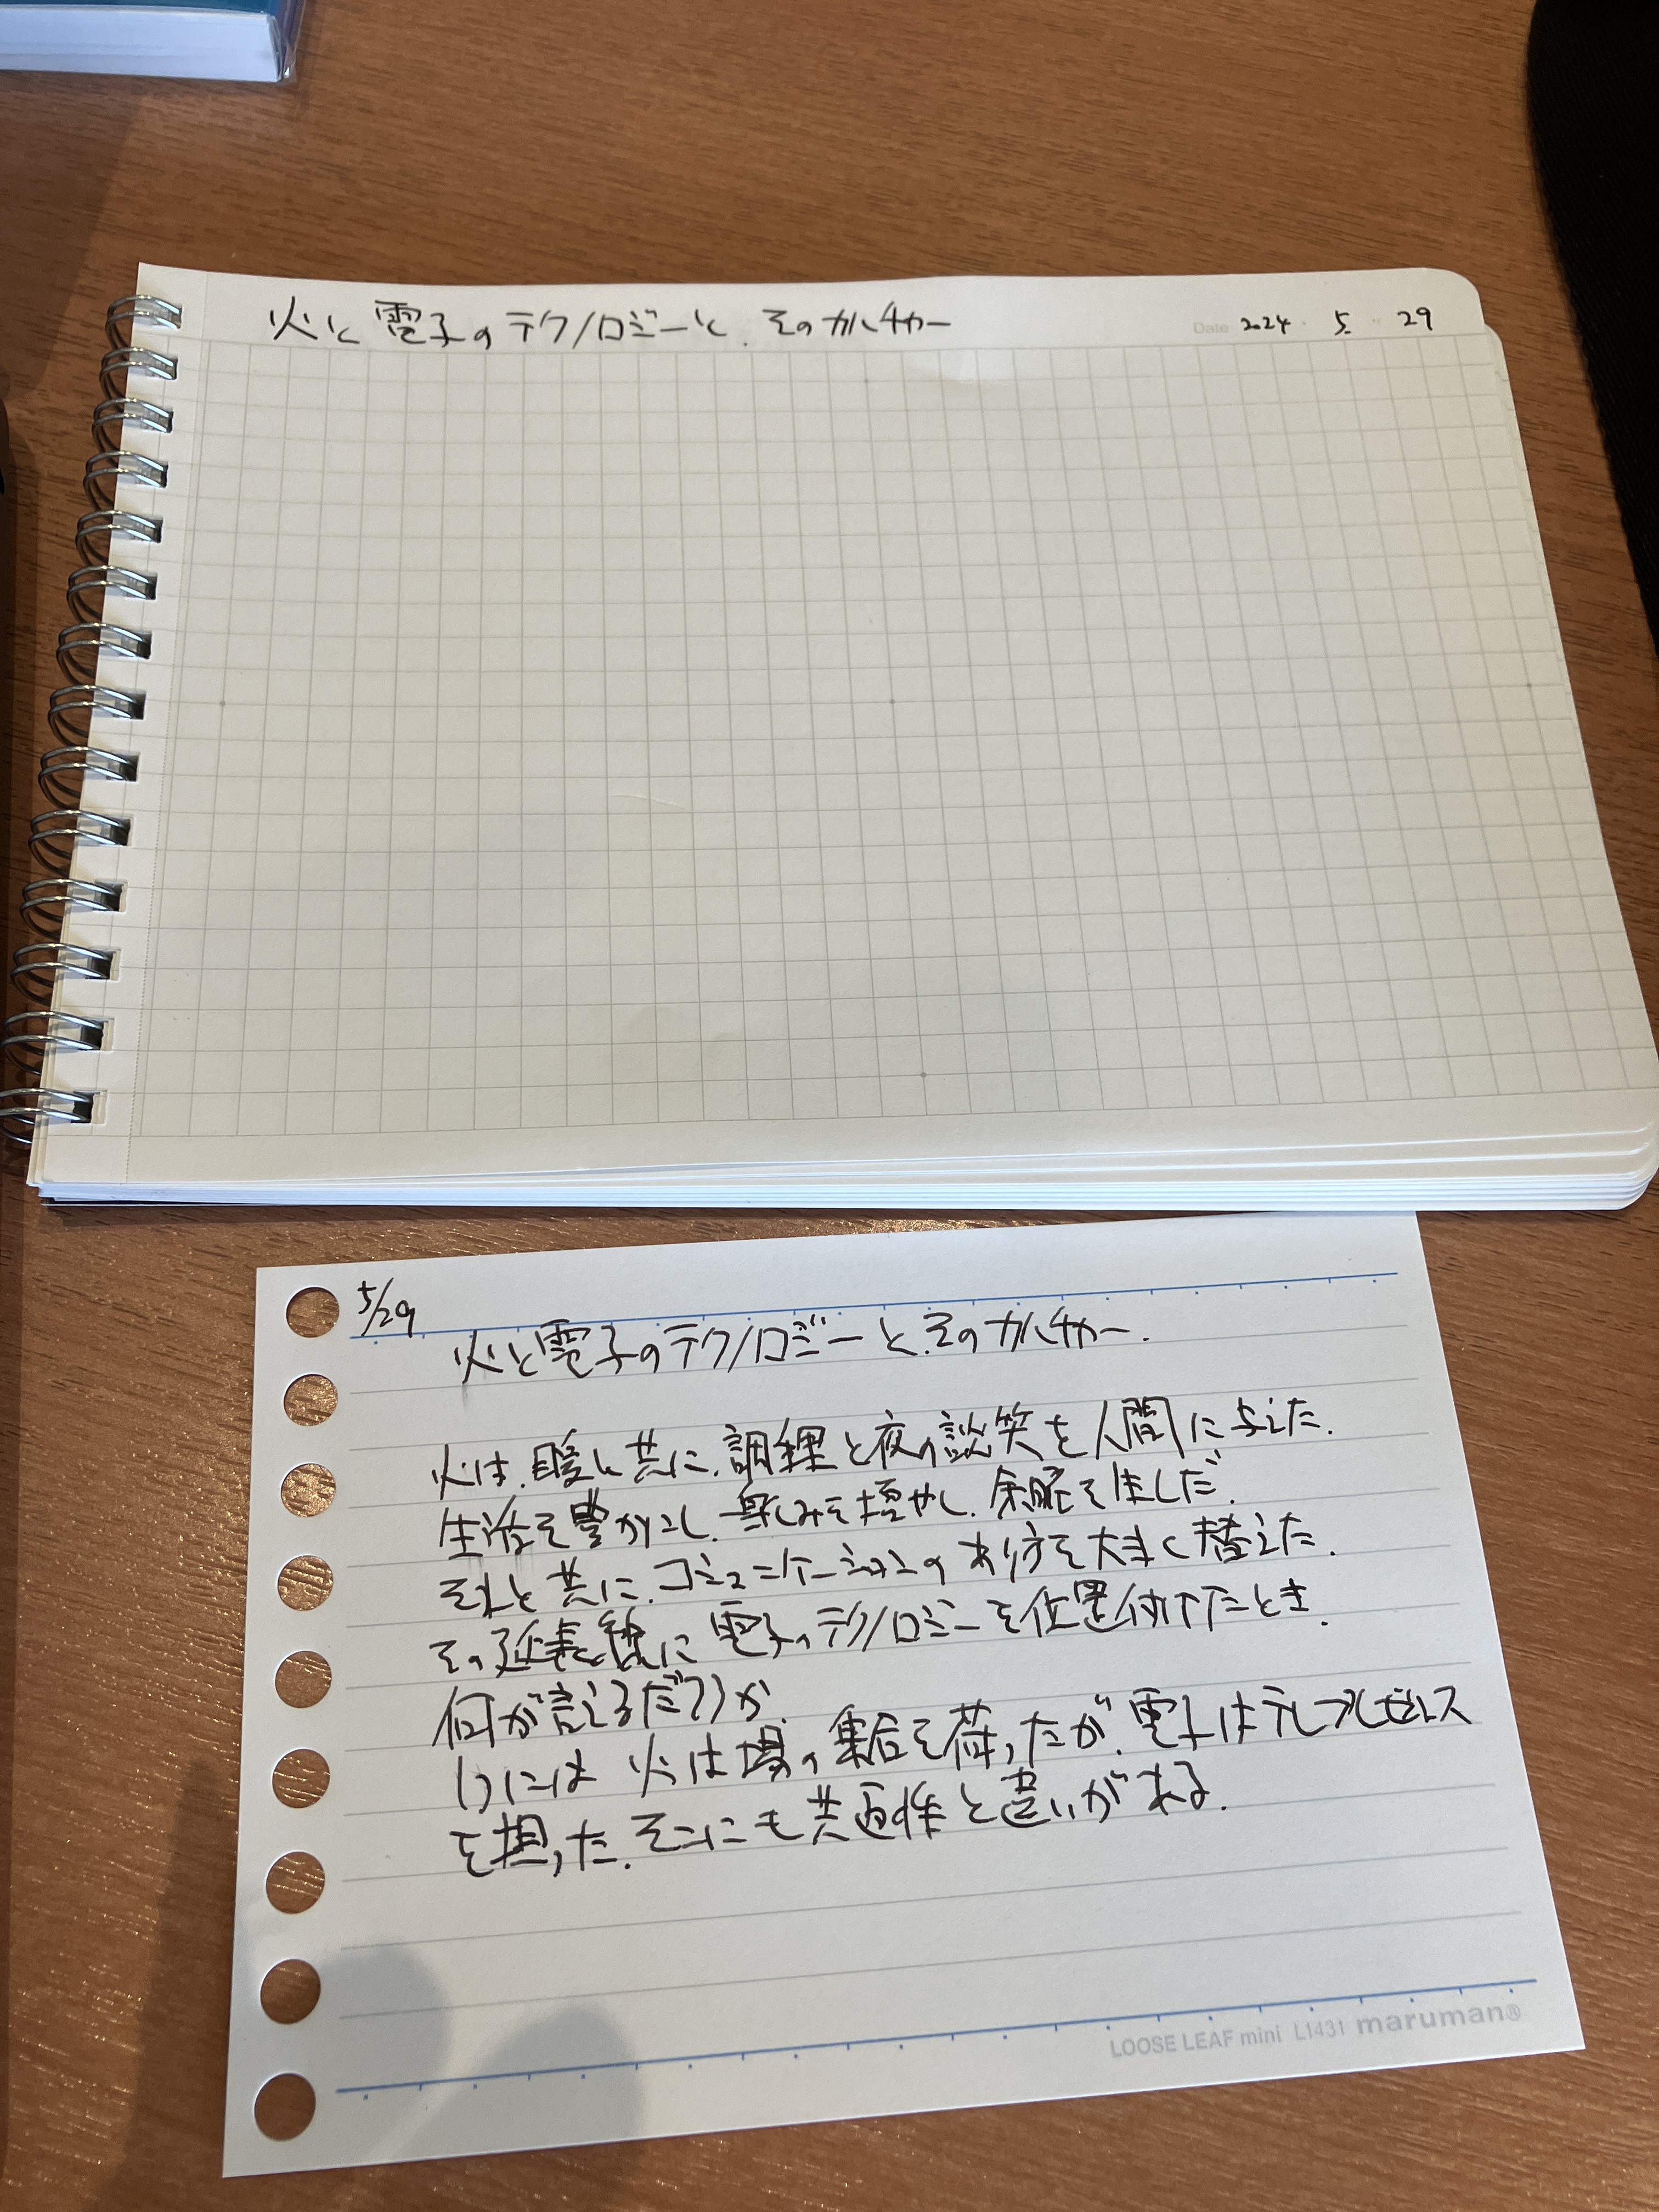 火と電子のテクノロジーと、そのカルチャー
Date 2024 5 29
5/29
火と電子のテクノロジーと、そのカルチャー.
火は、暖と共に、調理と夜の談笑を人間に与えた.
生活を豊かにし、楽しみを増やし、余暇を生しだ.
それと共に、コミュニケーションのあり方を大きく替えた.
その延長線に電子のテクノロジーを位置付けたとき.
何が言えるだろうか.
1つには 火は場の集合を荷ったが、電子はテレプレゼンス
を担った. そこにも共通性と違いがある.
LOOSE LEAF mini L1431 maruman®